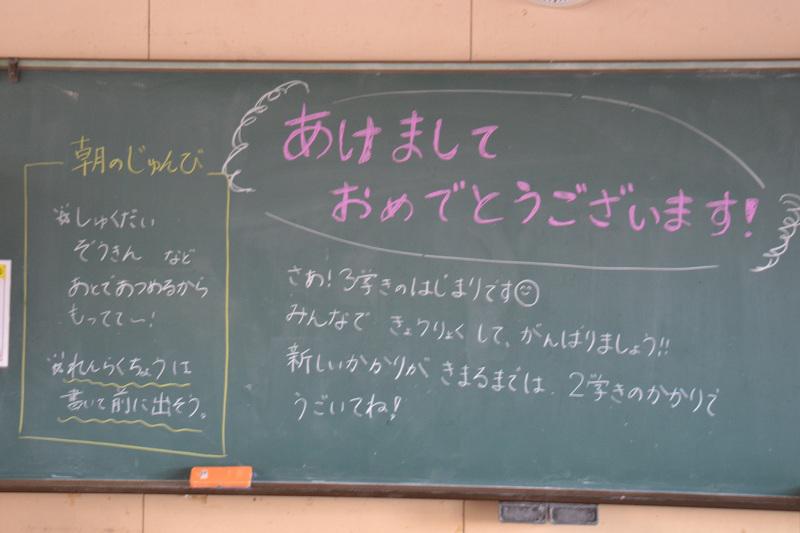 朝のじゅんび
※しゅくだい
ぞうきん など
あとであつめるから
もってて〜!
※れんらくちょうは
書いて前に出そう。
あけまして
おめでとうございます!
さあ!3学きのはじまりです☺
みんなで きょうりょくして、がんばりましょう!!
新しいかかりが きまるまでは、2学きのかかりで
うごいてね!